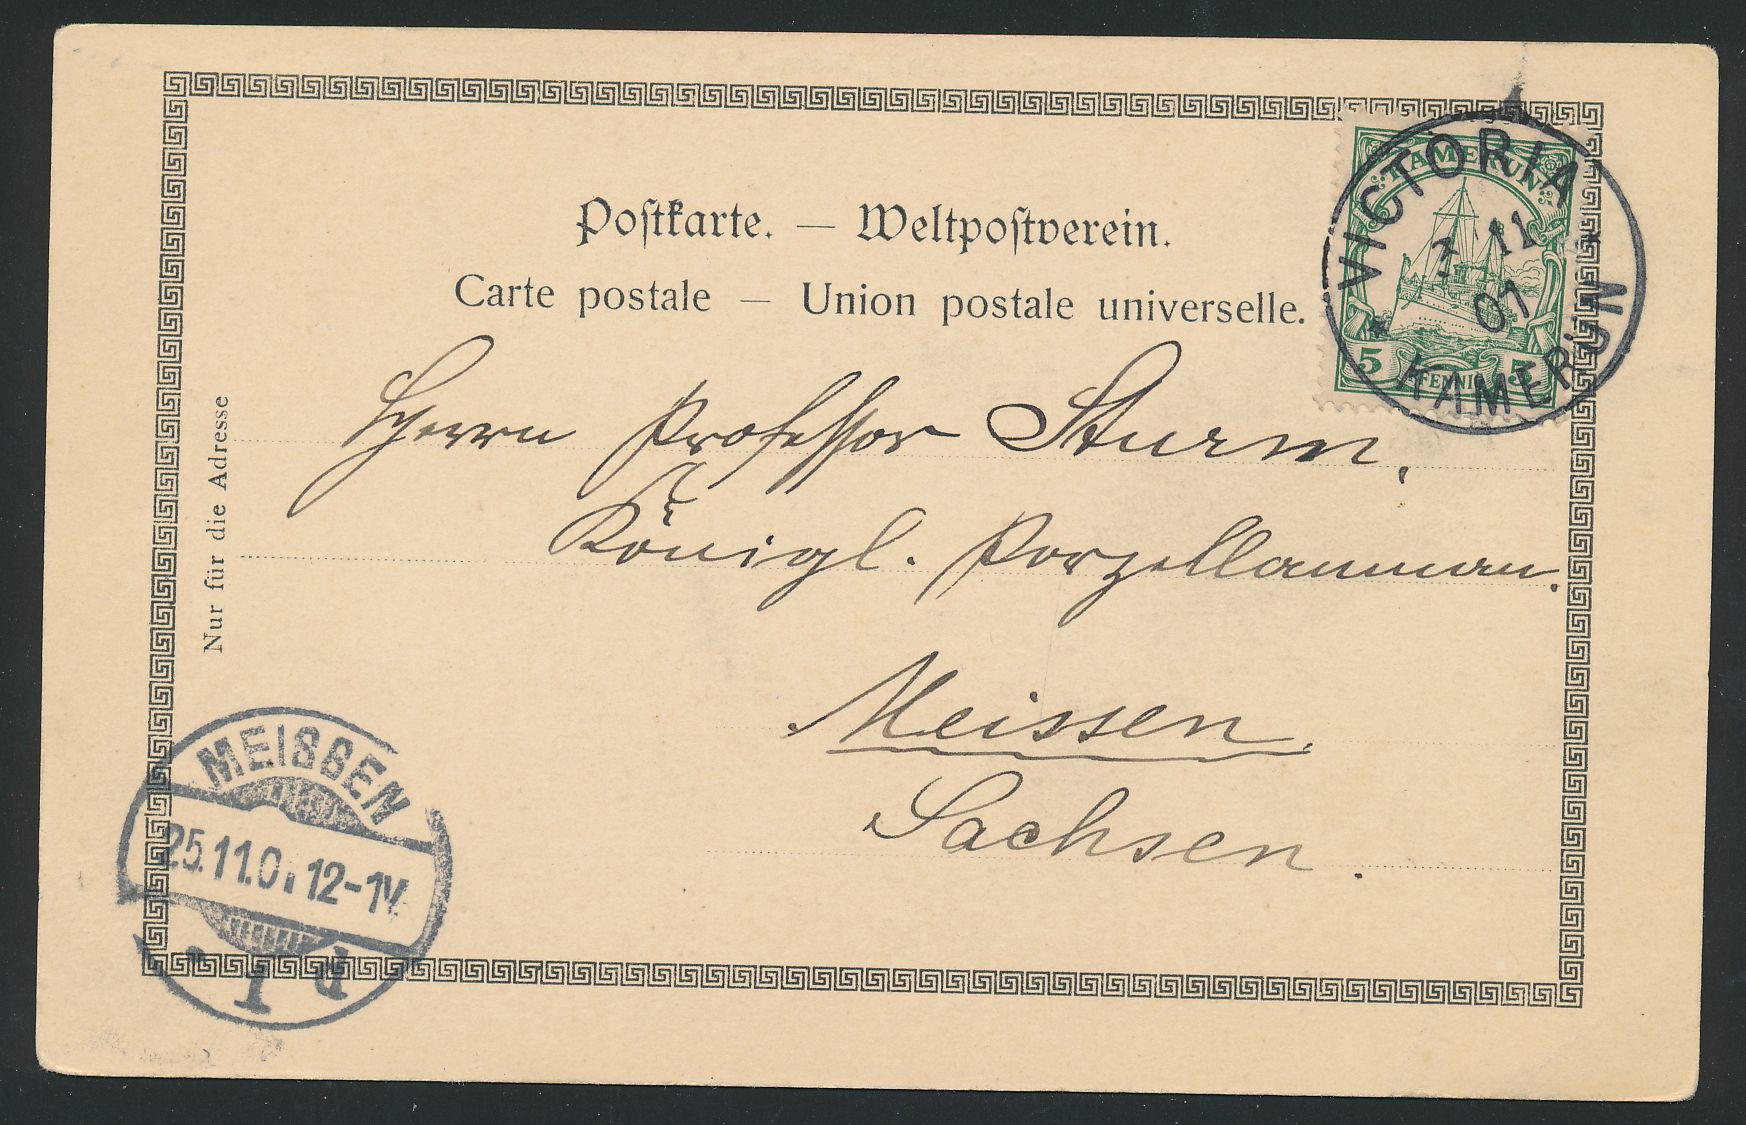 Postkarte. — Weltpostverein.
Carte postale — Union postale universelle.
KAMERUN
5 PFENNIG 5
VICTORIA
3/11
01
* KAMERUN *
Herrn Professor Sturm,
Königl. Porzellanman.
Meissen,
Sachsen.
Nur für die Adresse
MEISSEN
25.11.01 12-1V.